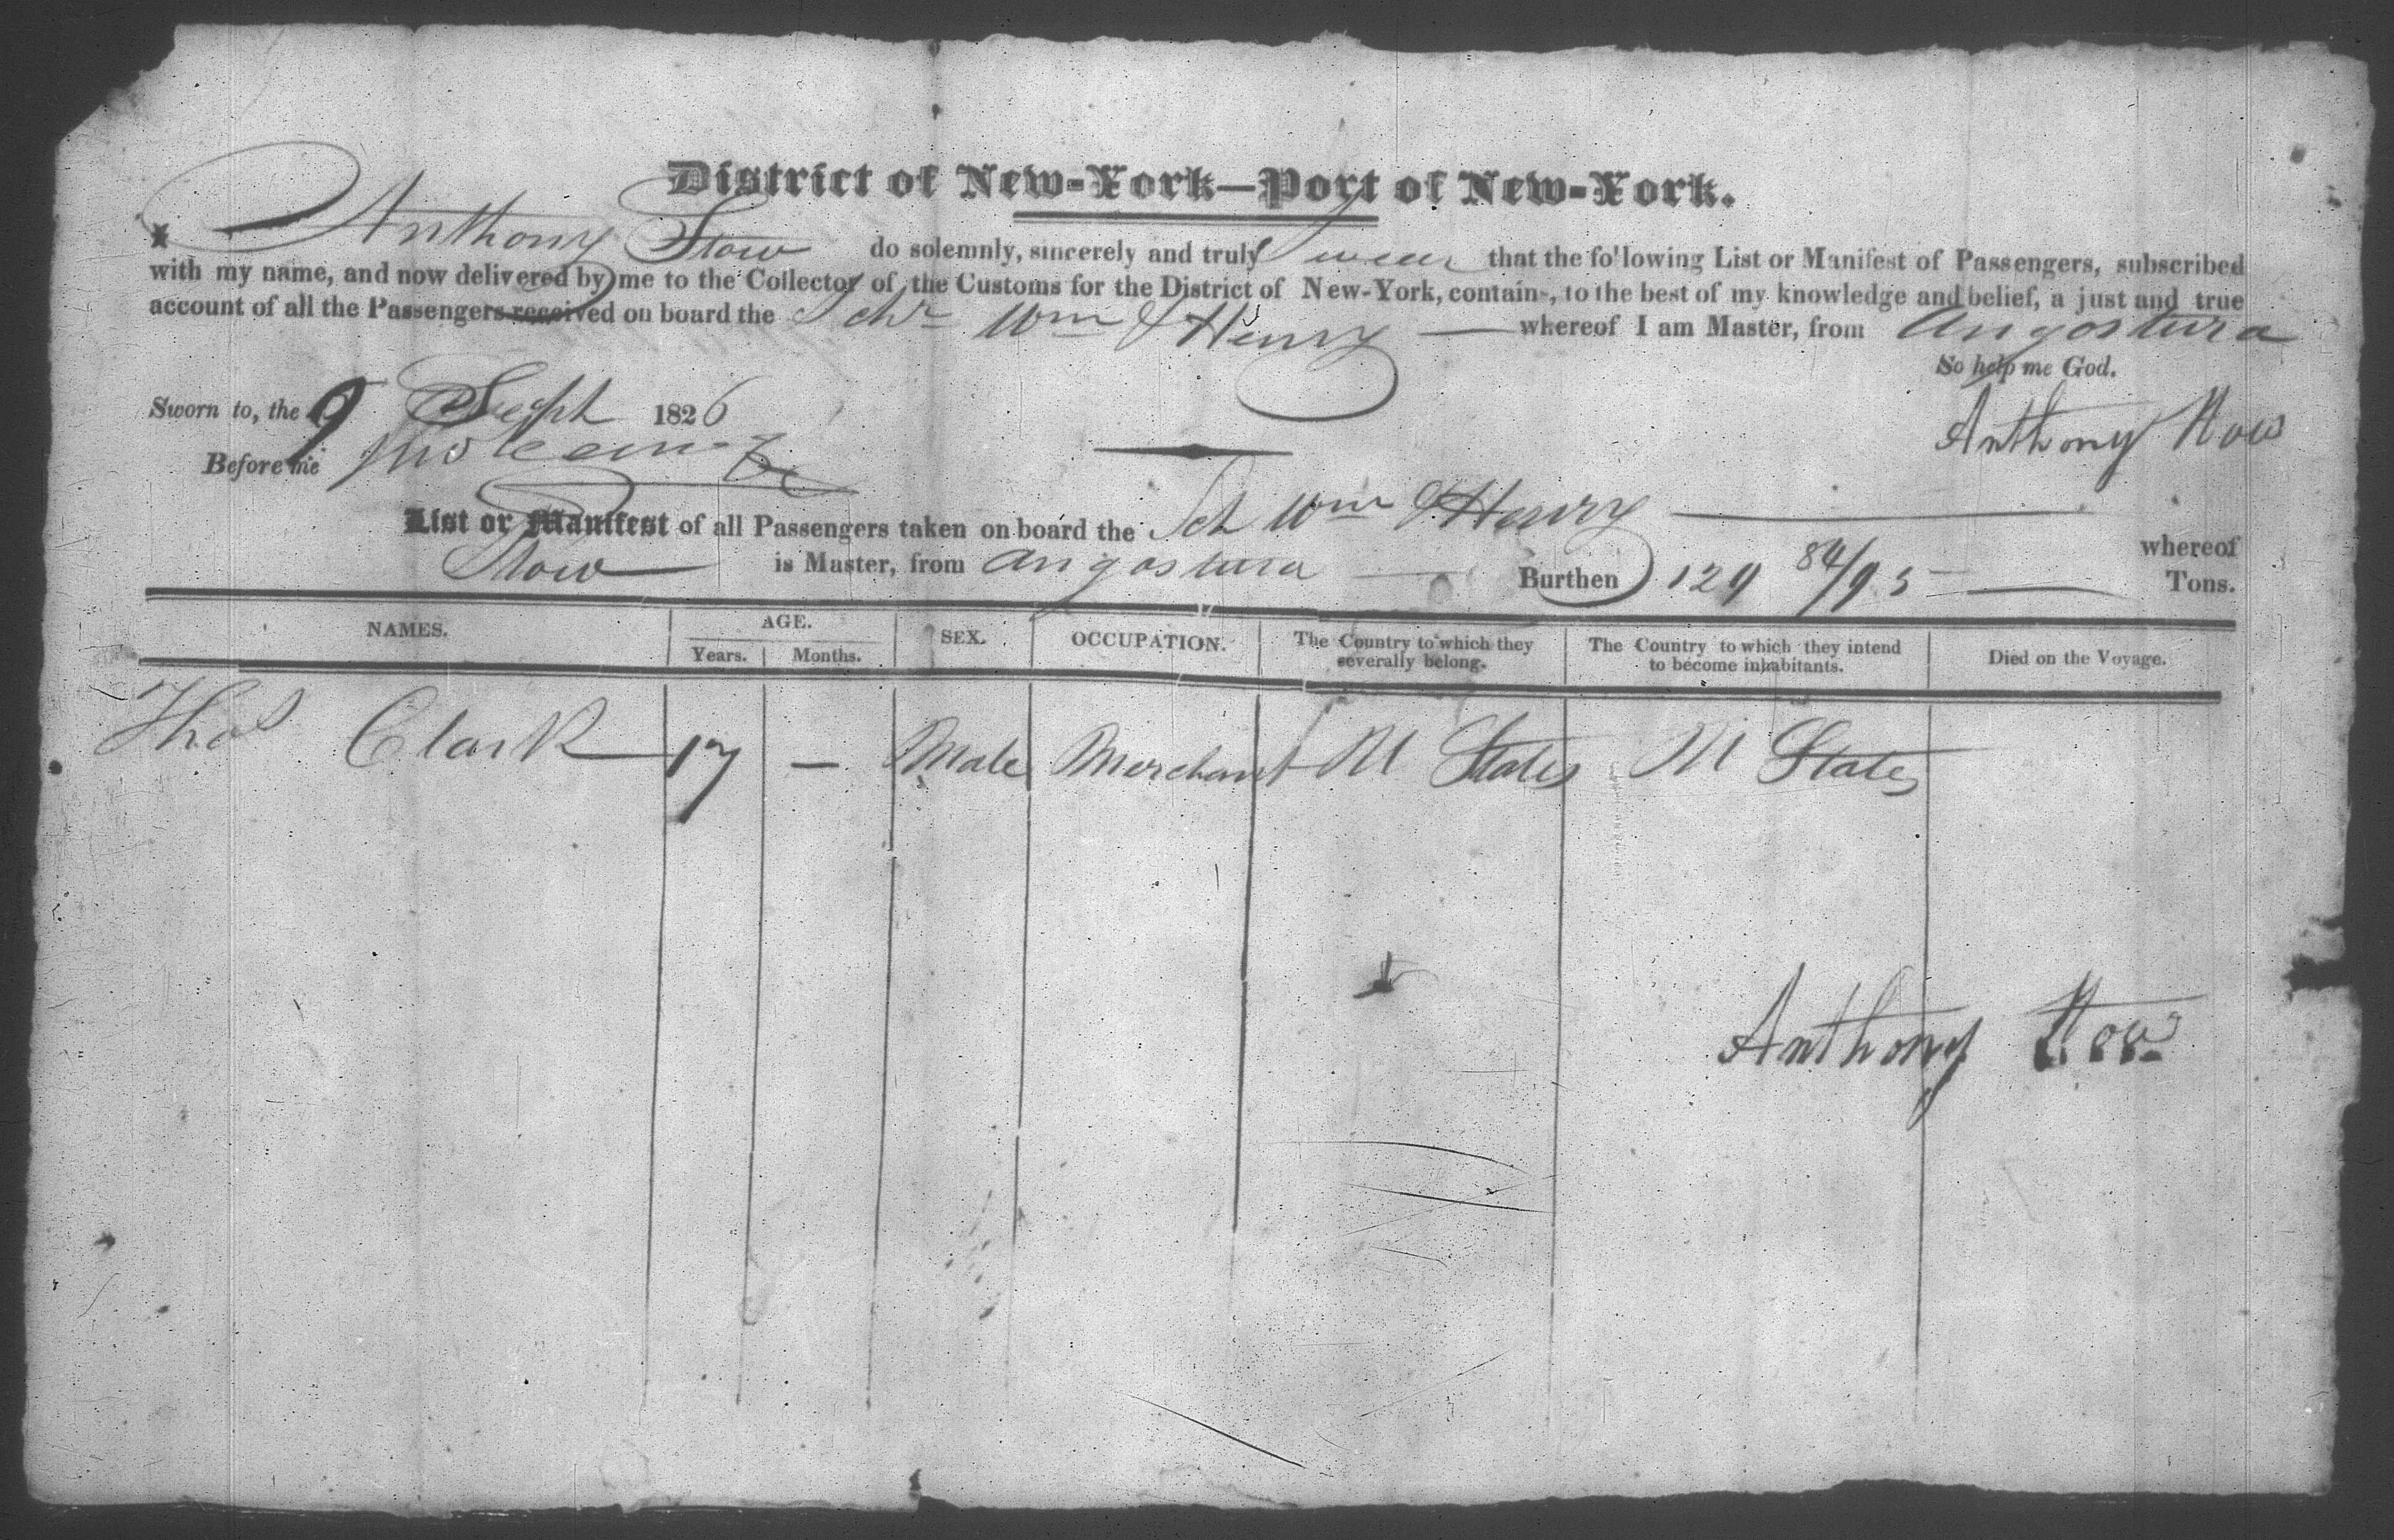 District of New-York—Port of New-York.
I Anthony Stow do solemnly, sincerely and truly Swear that the following List or Manifest of Passengers, subscribed
with my name, and now delivered by me to the Collector of the Customs for the District of New-York, contains, to the best of my knowledge and belief, a just and true
account of all the Passengers received on board the Schr Wm & Henry — whereof I am Master, from Angostura
So help me God.
Sworn to, the 9 Sept 1826
Anthony Stow
Before me
List or Manifest of all Passengers taken on board the Sch Wm & Henry — whereof
Stow — is Master, from Angostura — Burthen 129 84/95 — Tons.
NAMES. AGE. SEX. OCCUPATION. The Country to which they severally belong. The Country to which they intend to become inhabitants. Died on the Voyage.
Years. Months.
Thos Clark 17 — Male Merchant U States U States
Anthony Stow